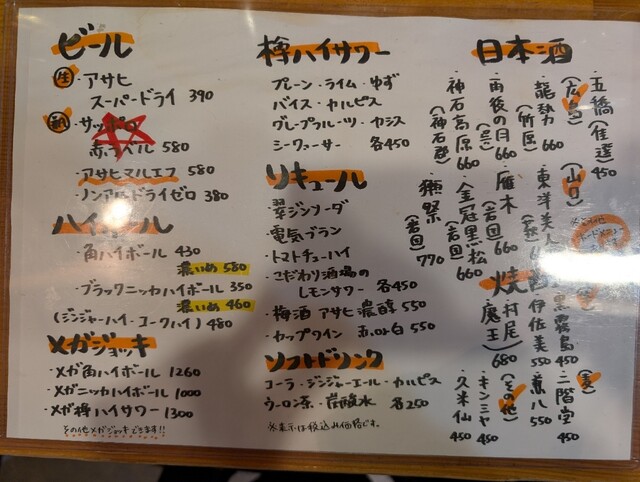 ビール
生 ・アサヒ
スーパードライ 390
・サッポロ
赤ラベル 580
・アサヒマルエフ 580
・ノンアルドライゼロ 380
ハイボール
・角ハイボール 430
濃いめ 580
・ブラックニッカハイボール 350
濃いめ 460
(ジンジャーハイ・コークハイ) 480
メガジョッキ
・メガ角ハイボール 1260
・メガニッカハイボール 1000
・メガ樽ハイサワー 1300
その他メガジョッキできます!!
樽ハイサワー
プレーン・ライム・ゆず
バイス・カルピス
グレープフルーツ・カシス
シークァーサー 各450
リキュール
・翠ジンソーダ
・電気ブラン
・トマトチューハイ
・こだわり酒場の
レモンサワー 各450
・梅酒 アサヒ濃醇 550
・カップワイン 赤or白 550
ソフトドリンク
コーラ・ジンジャーエール・カルピス
ウーロン茶・炭酸水 各250
※表示は税込み価格です。
日本酒
(広島)
五橋(佳選) 450
・龍勢(竹原) 660
・雨後の月(呉) 660
・神石高原(神石郡) 660
(山口)
・東洋美人(萩) 660
・雁木(岩国) 660
・金冠黒松(岩国) 660
・獺祭(岩国) 770
焼酎
黒霧島 450
伊佐美 550
村尾 魔王) 680
(麦)
二階堂 450
兼八 550
(その他)
キンミヤ 450
久米仙 450